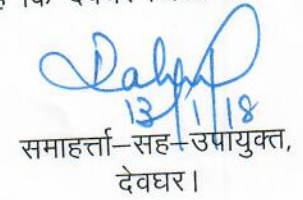 कि देवघर
13/1/18
समाहर्त्ता–सह–उपायुक्त,
देवघर।